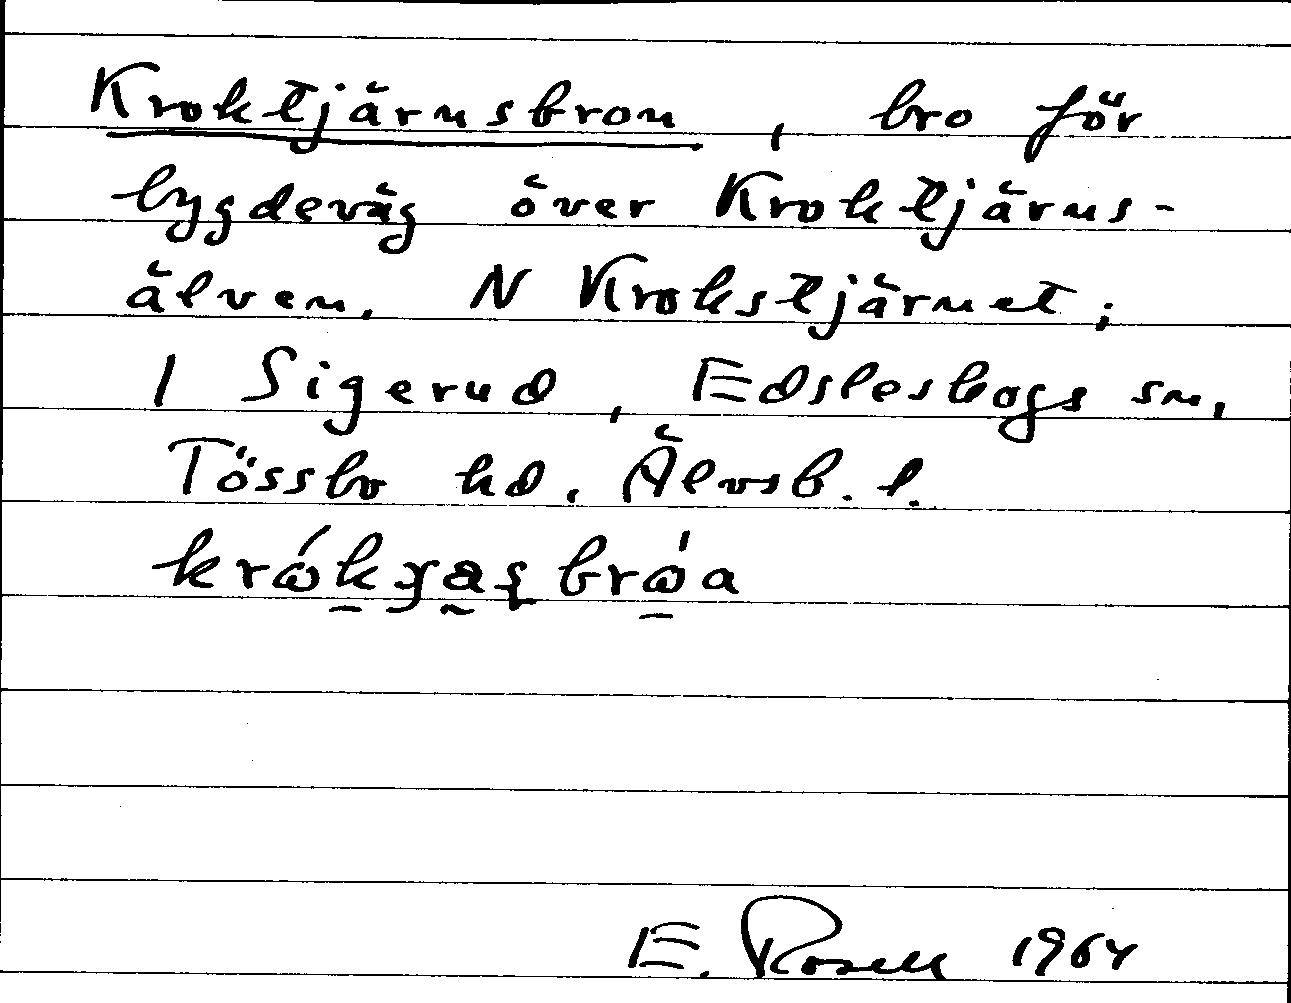 Kroktjärnsbron, bro för
bygdeväg över Kroktjärns-
älven. N Krokstjärnet;
1 Sigerud, Edsleskogs sn,
Tössbo hd. Älvsb. l.
E. Rosell 1964